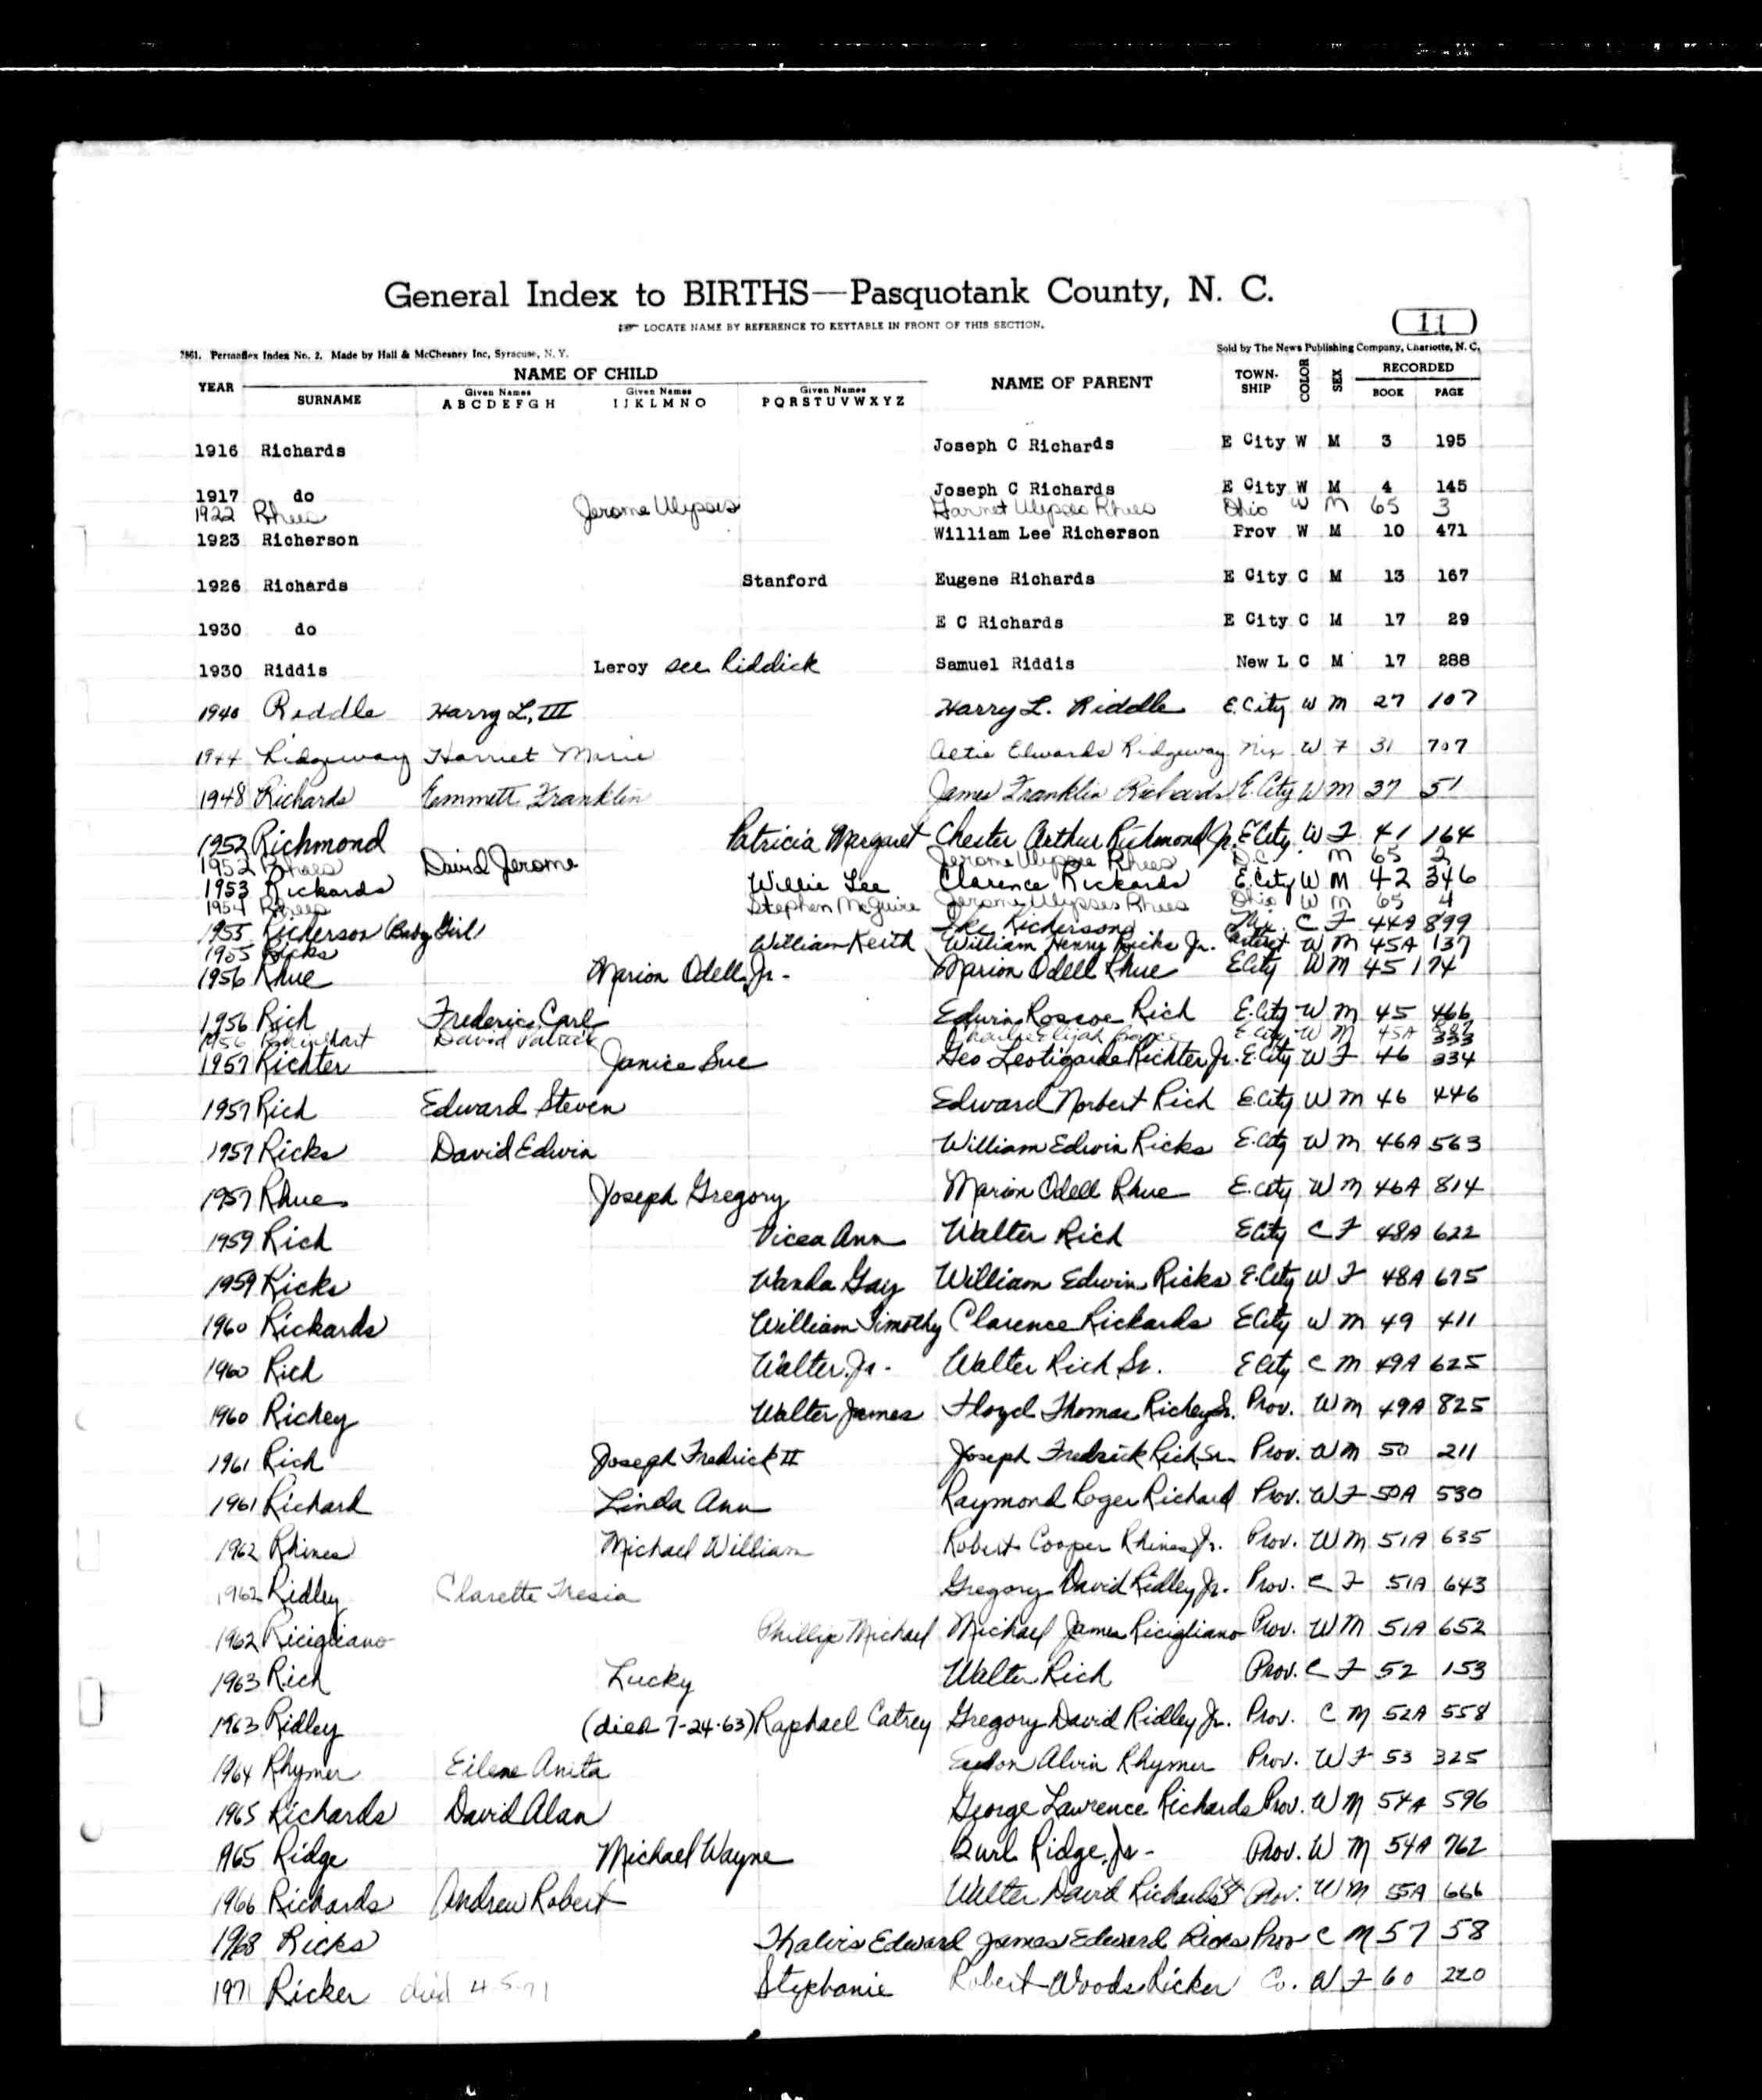 General Index to BIRTHS—Pasquotank County, N. C.
☞ LOCATE NAME BY REFERENCE TO KEYTABLE IN FRONT OF THIS SECTION.
(11)
7861. Permaflex Index No. 2. Made by Hall & McChesney Inc, Syracuse, N. Y. Sold by The News Publishing Company, Charlotte, N. C.
YEAR NAME OF CHILD NAME OF PARENT TOWN-SHIP COLOR SEX RECORDED
SURNAME Given Names A B C D E F G H Given Names I J K L M N O Given Names P Q R S T U V W X Y Z BOOK PAGE
1916 Richards Joseph C Richards E City W M 3 195
1917 do Joseph C Richards E City W M 4 145
1922 Rhees Jerome Ulysses Garnet Ulysses Rhees Ohio W M 65 3
1923 Richerson William Lee Richerson Prov W M 10 471
1926 Richards Stanford Eugene Richards E City C M 13 167
1930 do E C Richards E City C M 17 29
1930 Riddis Leroy see Riddick Samuel Riddis New L C M 17 288
1940 Riddle Harry L. III Harry L. Riddle E. City W M 27 107
1944 Ridgeway Harriet Marie Edwards Ridgeway Nix W F 31 707
1948 Richards Emmett Franklin James Franklin Richards E. City W M 37 51
1952 Richmond Patricia Margaret Chester Arthur Richmond Jr. E City W F 41 164
1952 Rhees David Jerome Jerome Ulysses Rhees D.C. M 65 2
1953 Rickards Willie Lee Clarence Rickards E. City W M 42 346
1954 Rhees Stephen McGuire Jerome Ulysses Rhees Ohio W M 65 4
1955 Richerson (Baby Girl) Richerson Nix. C F 44A 899
1955 Ricks William Keith William Henry Ricks Jr. W M 45A 137
1956 Rhue Marion Odell Jr. Marion Odell Rhue E City W M 45 174
1956 Rich Frederic Carl Edwin Roscoe Rich E. City W M 45 466
1956 David Patrick Charlie Elijah E City W M 45A
1957 Richter Janice Sue Geo Richter Jr. E. City W F 46 334
1957 Rich Edward Steven Edward Norbert Rich E. City W M 46 446
1957 Ricks David Edwin William Edwin Ricks E. City W M 46A 563
1957 Rhue Joseph Gregory Marion Odell Rhue E. City W M 46A 814
1959 Rich Vicea Ann Walter Rich E City C F 48A 622
1959 Ricks Wanda Gay William Edwin Ricks E. City W F 48A 675
1960 Rickards William Timothy Clarence Rickards E City W M 49 411
1960 Rich Walter Jr. Walter Rich Sr. E City C M 49A 625
1960 Richey Walter James Floyd Thomas Richey Sr. Prov. W M 49A 825
1961 Rich Joseph Fredrick II Joseph Fredrick Rich Sr. Prov. W M 50 211
1961 Richard Linda Ann Raymond Roger Richard Prov. W F 50A 530
1962 Rhines Michael William Robert Cooper Rhines Jr. Prov. W M 51A 635
1962 Ridley Clarette Tresia Gregory David Ridley Jr. Prov. C F 51A 643
1962 Ricigliano Phillip Michael Michael James Ricigliano Prov. W M 51A 652
1963 Rich Lucky Walter Rich Prov. C F 52 153
1963 Ridley (died 7-24-63) Raphael Catrey Gregory David Ridley Jr. Prov. C M 52A 558
1964 Rhymer Eilene Anita Alvin Rhymer Prov. W F 53 325
1965 Richards David Alan George Lawrence Richards Prov. W M 54A 596
1965 Ridge Michael Wayne Burl Ridge, Jr. Prov. W M 54A 762
1966 Richards Andrew Robert Walter David Richards Prov. W M 55A 666
1968 Ricks Thalvis Edward James Edward Ricks Prov C M 57 58
1971 Ricker died 4-5-71 Stephanie Robert Woods Ricker Co. W F 60 220